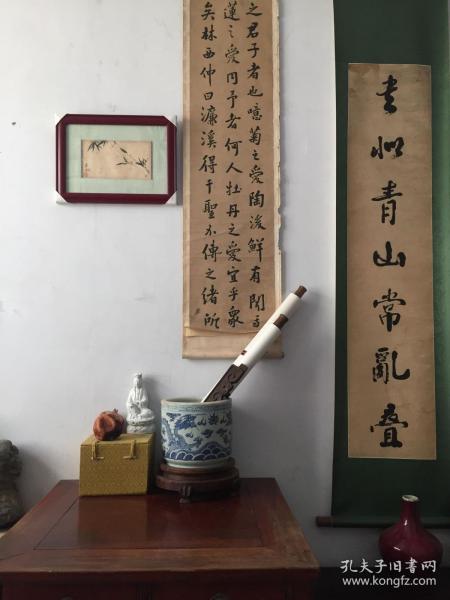 書似青山常亂叠
之君子者也噫菊之愛陶後鮮有聞
蓮之愛同予者何人牡丹之愛宜乎衆
矣林西仲曰濂溪得千聖不傳之緒所
孔夫子旧书网
www.kongfz.com